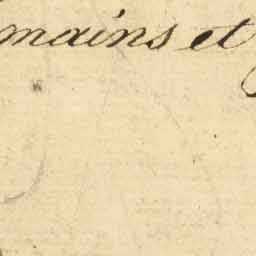 mains et